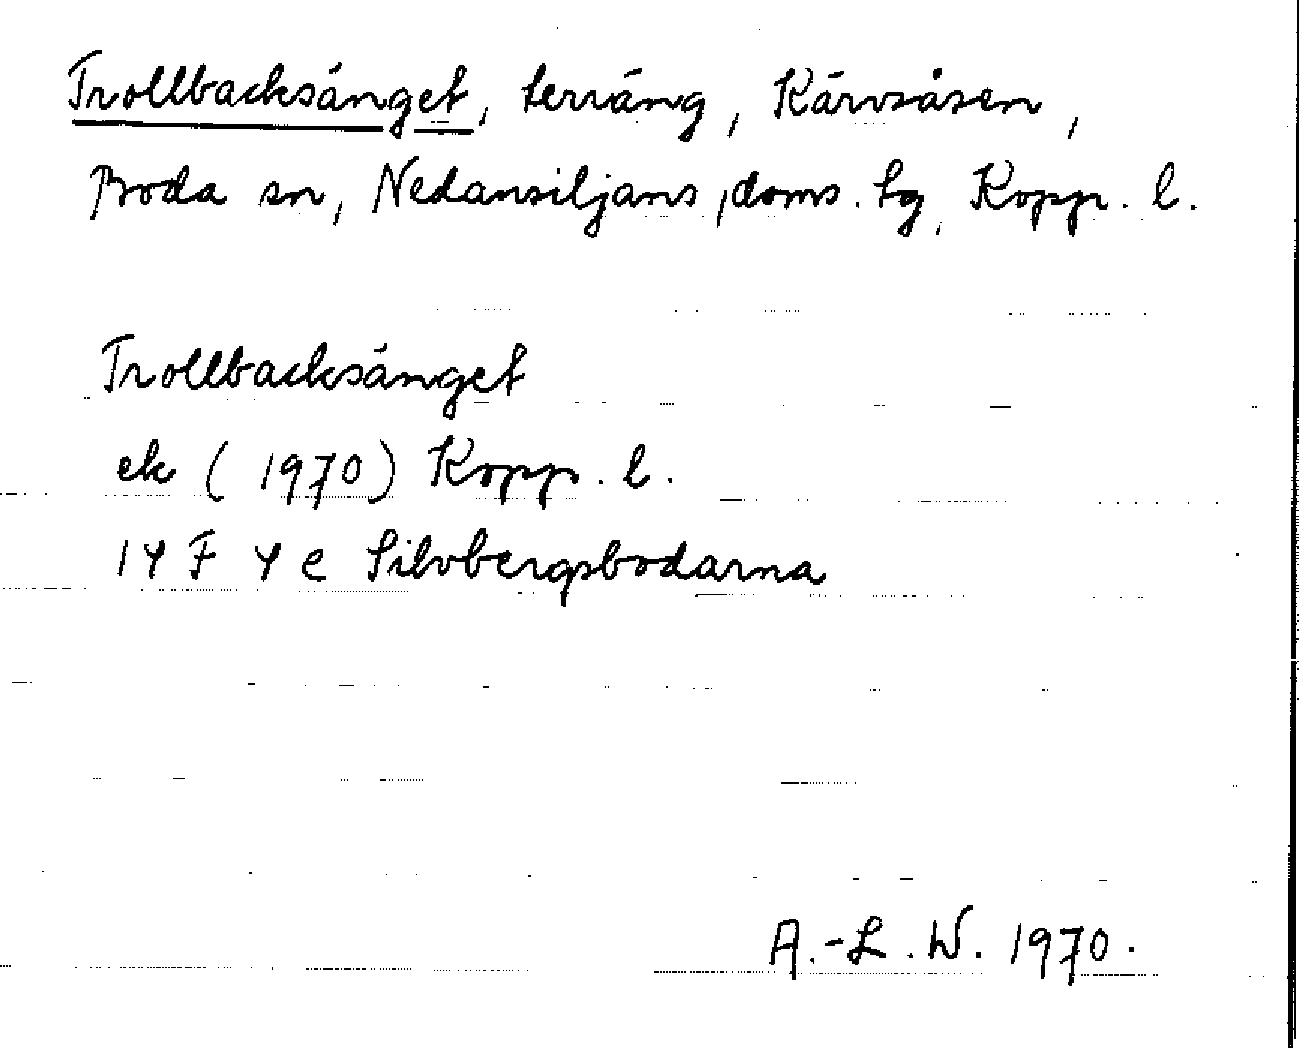 Trollbacksänget, terräng, Kärvsåsen,
Boda sn, Nedansiljans, doms. tg, Kopp. l.
Trollbacksänget
ek (1970) Kopp. l.
14 F 4 e Silvbergsbodarna
A.-L. W. 1970.